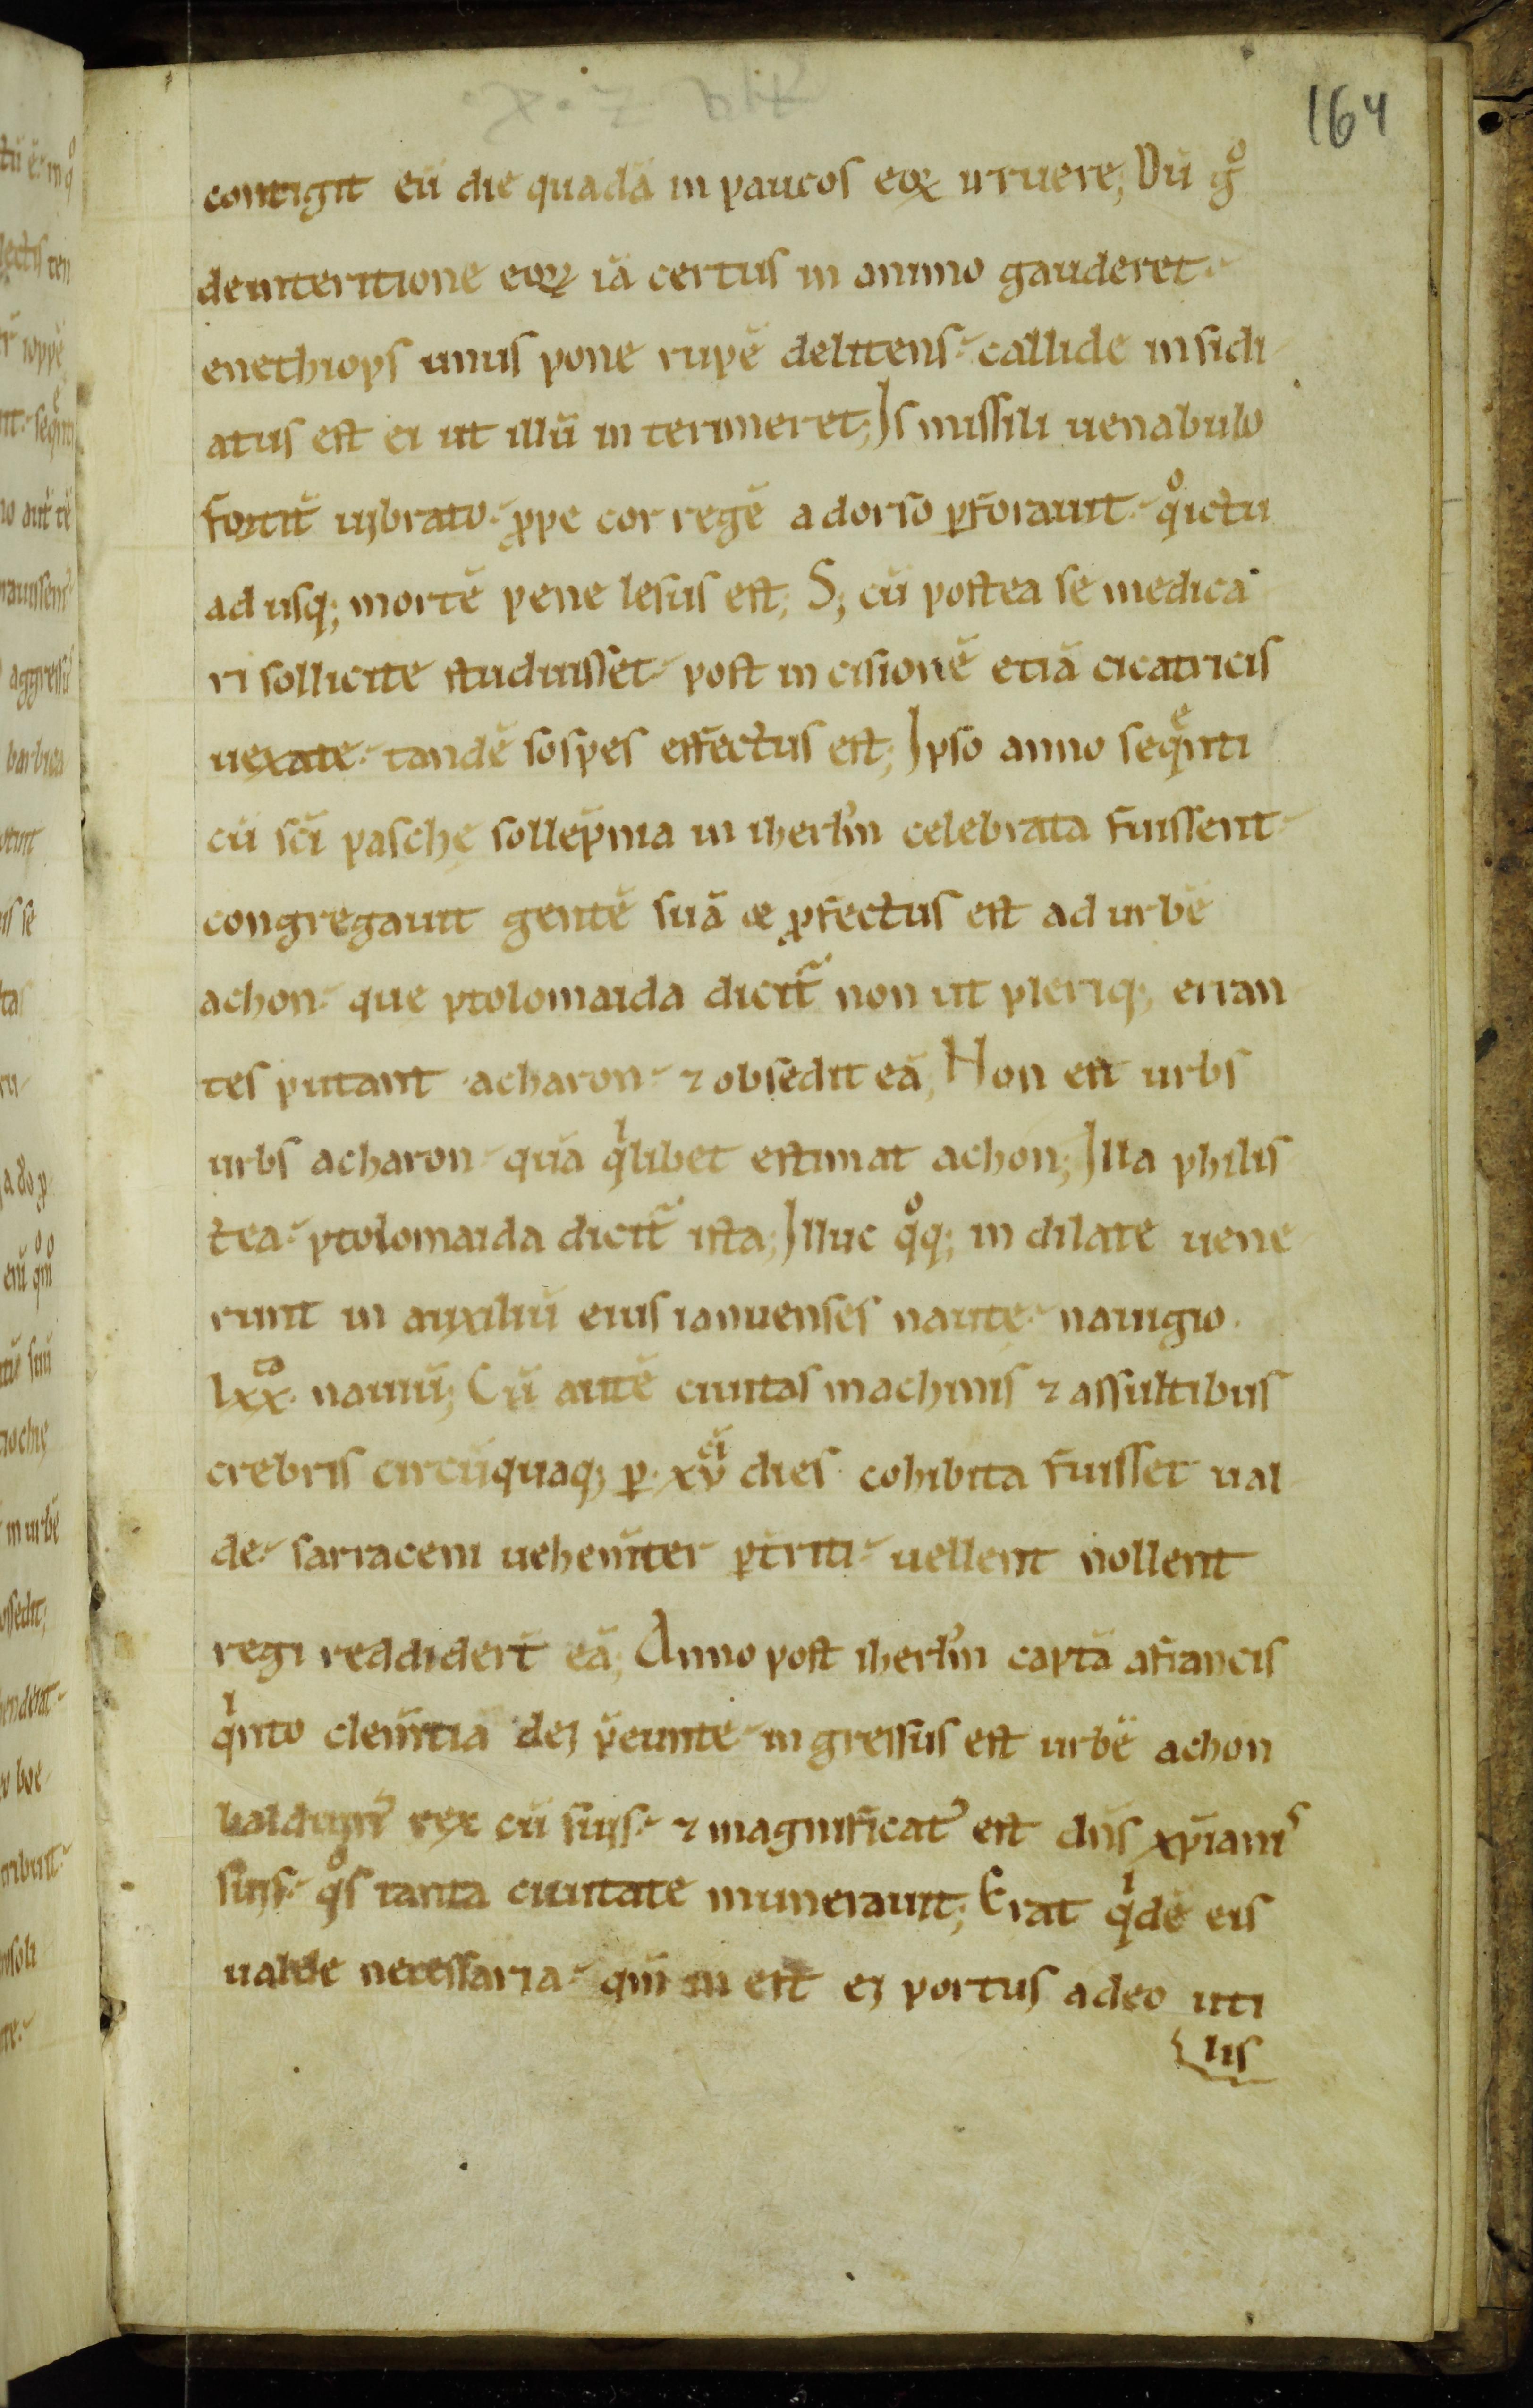 164
contigit eū die quadā in paucos eoꝝ irruere; Dū gͦ
de interitione eoꝝ iā certus in animo gauderet·
en ethiops unus pone rupē delitens· callide insidi
atus est ei ut illū interimeret; Is missili uenabulo
fortit̄ uibrato· ꝓpe cor regē a dorso ꝑforauit· qͦ ictu
ad usq; mortē pene lesus est; S; cū postea se medica
ri sollicite studuisset· post incisionē etiā cicatricis
uexate· tandē sospes effectus est; Ipso anno seqͤnti
cū sc̄i paschę sollēpnia in iherl̄m celebrata fuissent·
congregauit gentē suā & ꝓfectus est ad urbē
achon· que ptolomaida dicit᷑ non ut pleriq; erran
tes putant acharon· ⁊ obsedit eā; Non est urbs
urbs acharon· quā qͥlibet estimat achon; Illa philis
tea· ptolomaida dicit᷑ ista; Illuc qͦq; indilate uene
runt in auxiliū eius ianuenses naute· nauigio
lxx ͭͣ nauiū; Cū autē ciuitas machinis ⁊ assultibus
crebris circūquaq; ꝑ · xv ͨⁱ dies cohibita fuisset ual
de· sarraceni uehem̄ter ꝑt̄riti· uellent nollent
regi reddider̄t eā; Anno post iherl̄m captā a francis
qͥnto clem̄tia dei p̄eunte· ingressus est urbē achon
balduinꝰ rex cū suis· ⁊ magnificatꝰ est dn̄s xp̄ianiˢ
suis· qͦs tanta ciuitate munerauit; Erat qͥdē eis
ualde necessaria· qm̄ in est ei portus adeo uti
lis